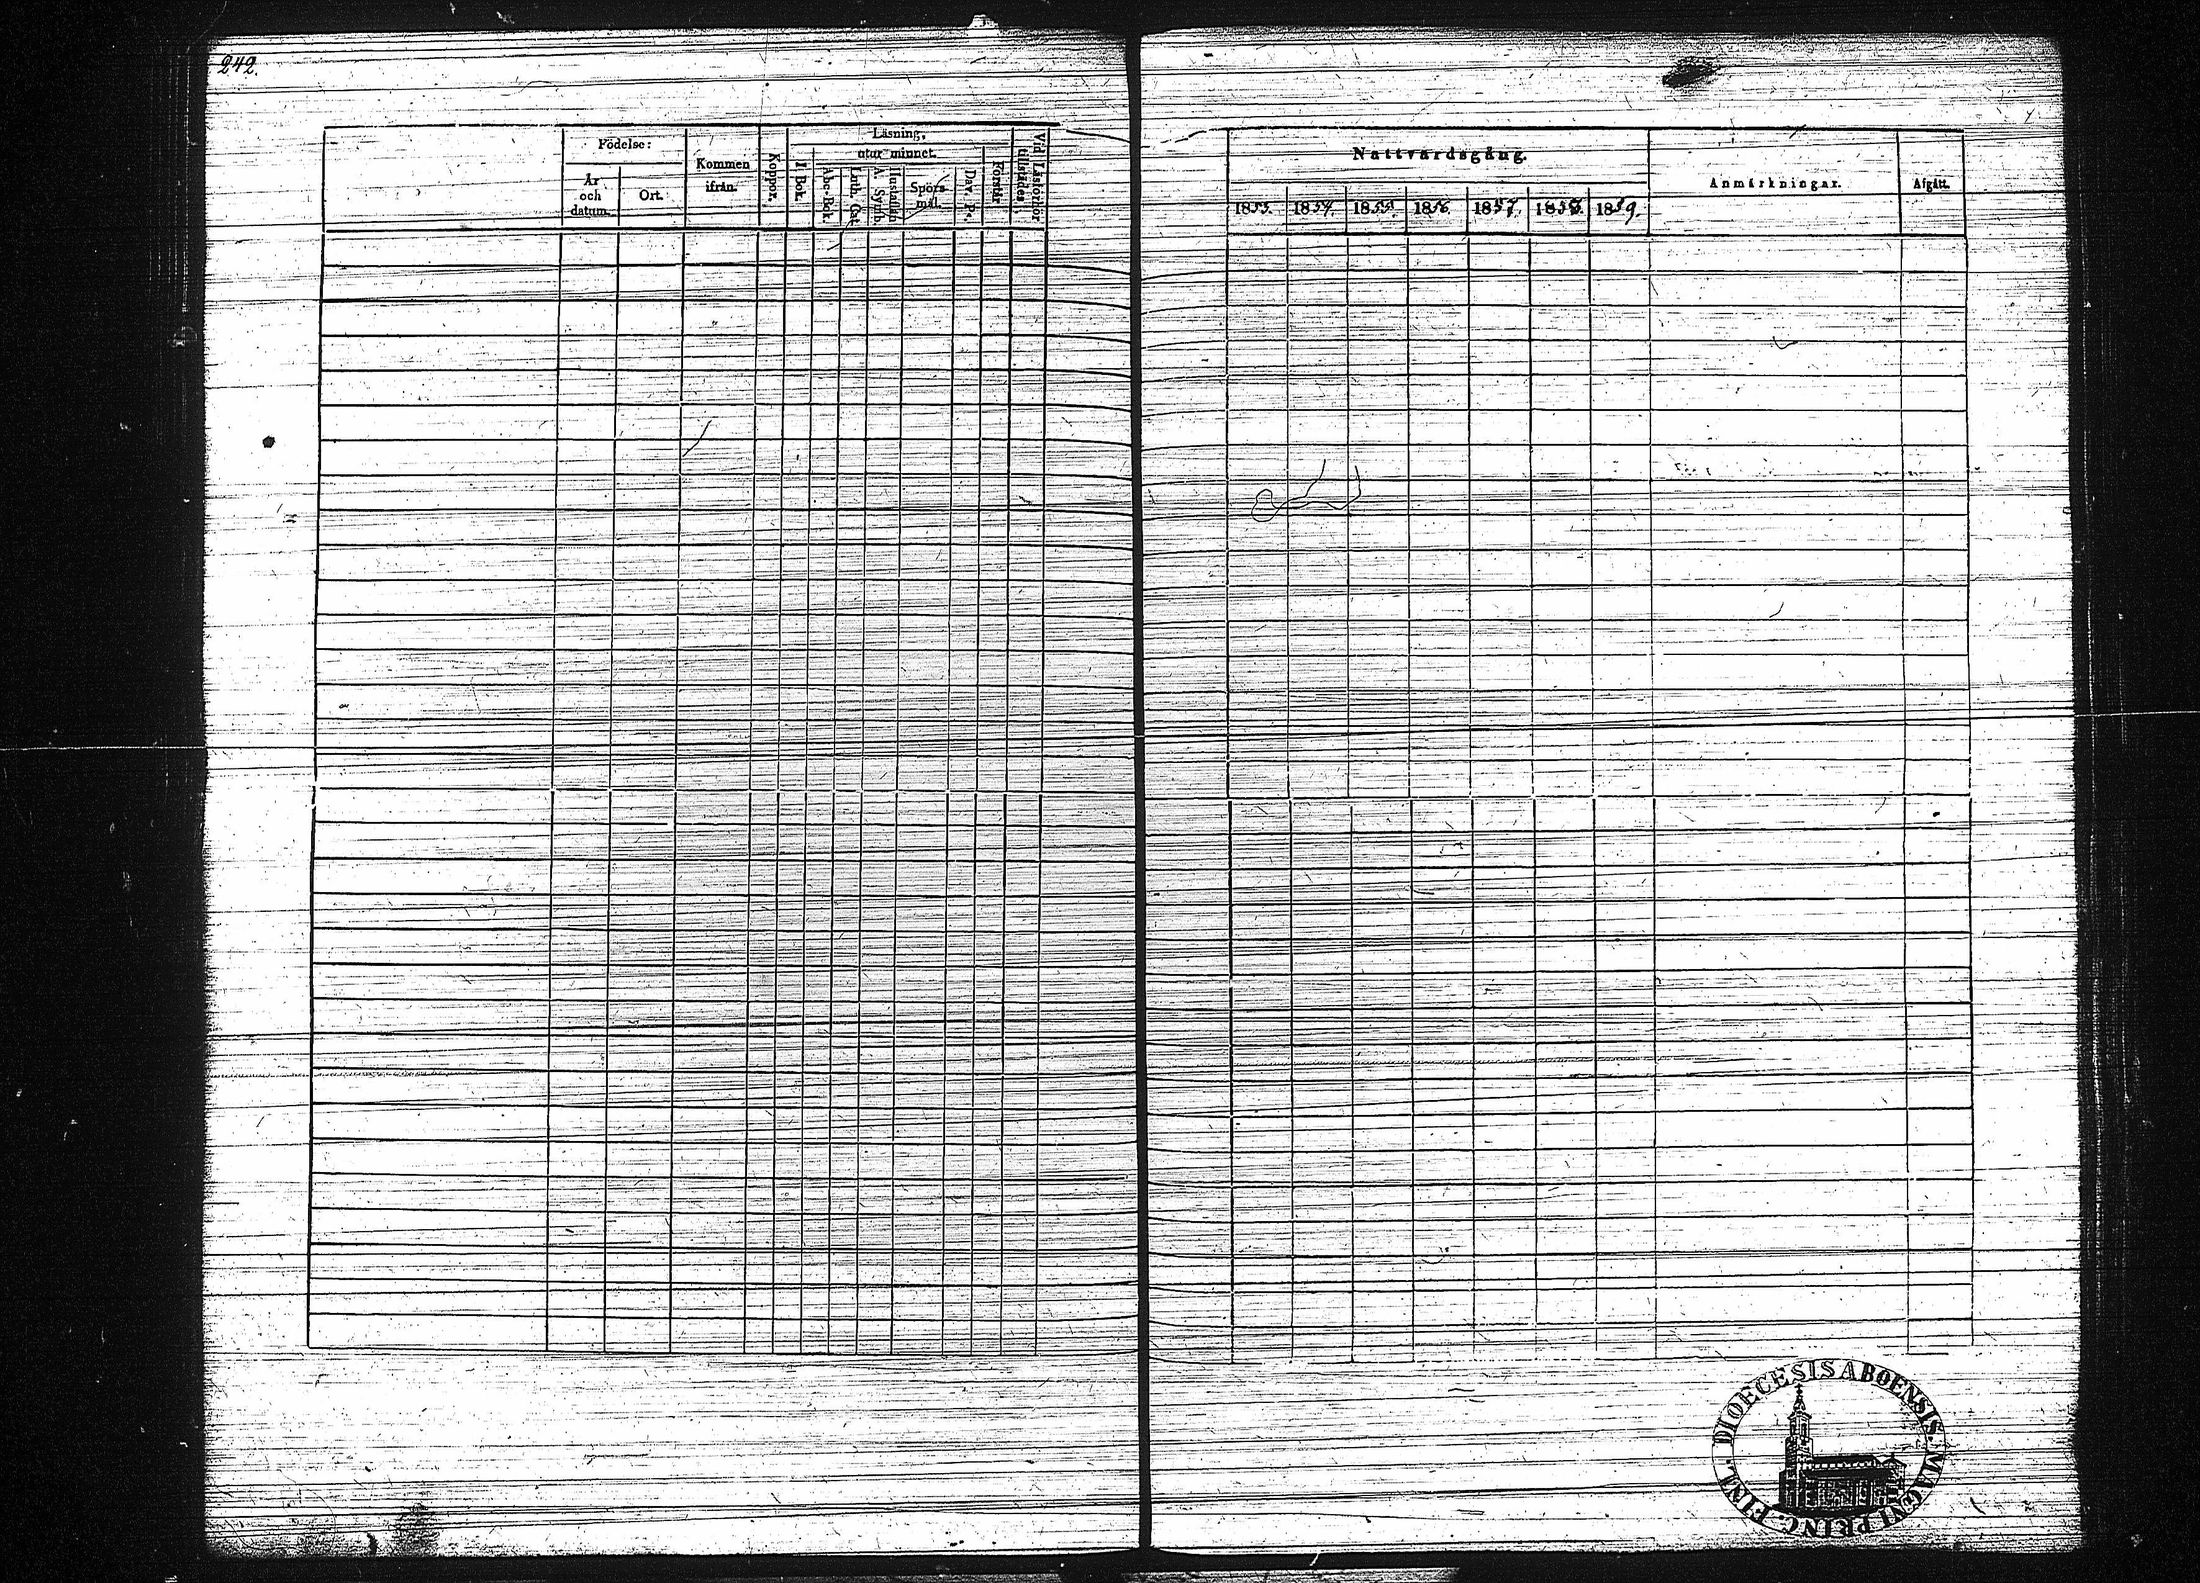 242.
Födelse:
År och datum.
Ort.
Kommen ifrån.
Koppor.
Läsning,
I Bok.
utur minnet.
Abc-Bok.
Luth. Cat.
Hustaflan A. Symb.
Spörsmål.
Dav. Ps.
Förstår
Vid Läsförhör tillstädes.
Nattvardsgång.
1853.
1854.
1855.
1856.
1857.
1858.
1859.
Anmärkningar.
Afgått.
DIOECESIS ABOENSIS. MAGNI PRINC. FINL.